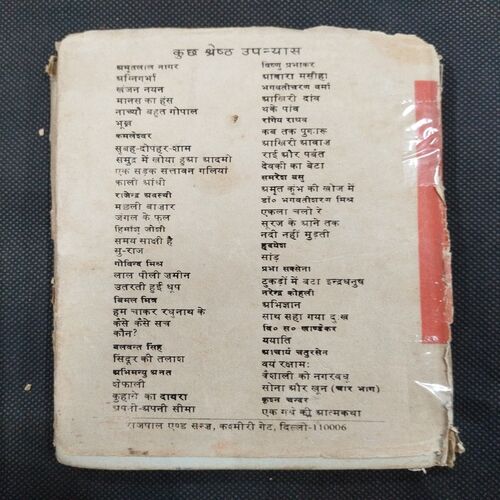 कुछ श्रेष्ठ उपन्यास
अमृतलाल नागर
अग्निगर्भा
खंजन नयन
मानस का हंस
नाच्यौ बहुत गोपाल
भूख
कमलेश्वर
सुबह-दोपहर-शाम
समुद्र में खोया हुआ आदमी
एक सड़क सत्तावन गलियां
काली आंधी
राजेन्द्र अवस्थी
मछली बाजार
जंगल के फूल
हिमांशु जोशी
समय साक्षी है
सु-राज
गोविन्द मिश्र
लाल पीली ज़मीन
उतरती हुई धूप
बिमल मित्र
हम चाकर रघुनाथ के
कैसे कैसे सच
कौन?
बलवन्त सिंह
सिंदूर की तलाश
अभिमन्यु अनत
शेफाली
कुहासे का दायरा
अपनी-अपनी सीमा
विष्णु प्रभाकर
आवारा मसीहा
भगवतीचरण वर्मा
आखिरी दांव
थके पांव
रांगेय राघव
कब तक पुकारूं
आखिरी आवाज
राई और पर्वत
देवकी का बेटा
समरेश बसु
अमृत कुंभ की खोज में
डॉ० भगवतीशरण मिश्र
एकला चलो रे
सूरज के आने तक
नदी नहीं मुड़ती
हृदयेश
सांड
प्रभा सक्सेना
टुकड़ों में बंटा इन्द्रधनुष
नरेन्द्र कोहली
अभिज्ञान
साथ सहा गया दुःख
वि० स० खाण्डेकर
ययाति
आचार्य चतुरसेन
वयं रक्षामः
वैशाली की नगरवधू
सोना और खून (चार भाग)
कृश्न चन्दर
एक गधे की आत्मकथा
राजपाल एण्ड सन्ज़, कश्मीरी गेट, दिल्ली-110006